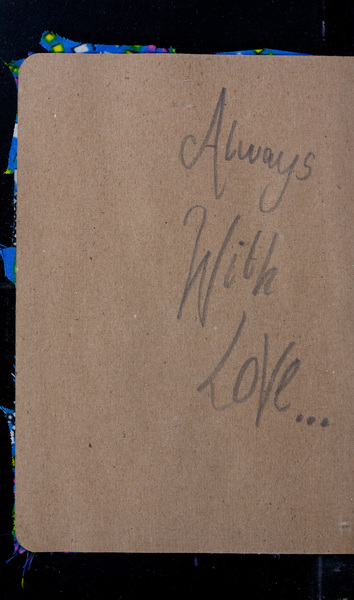 Always
With
Love...